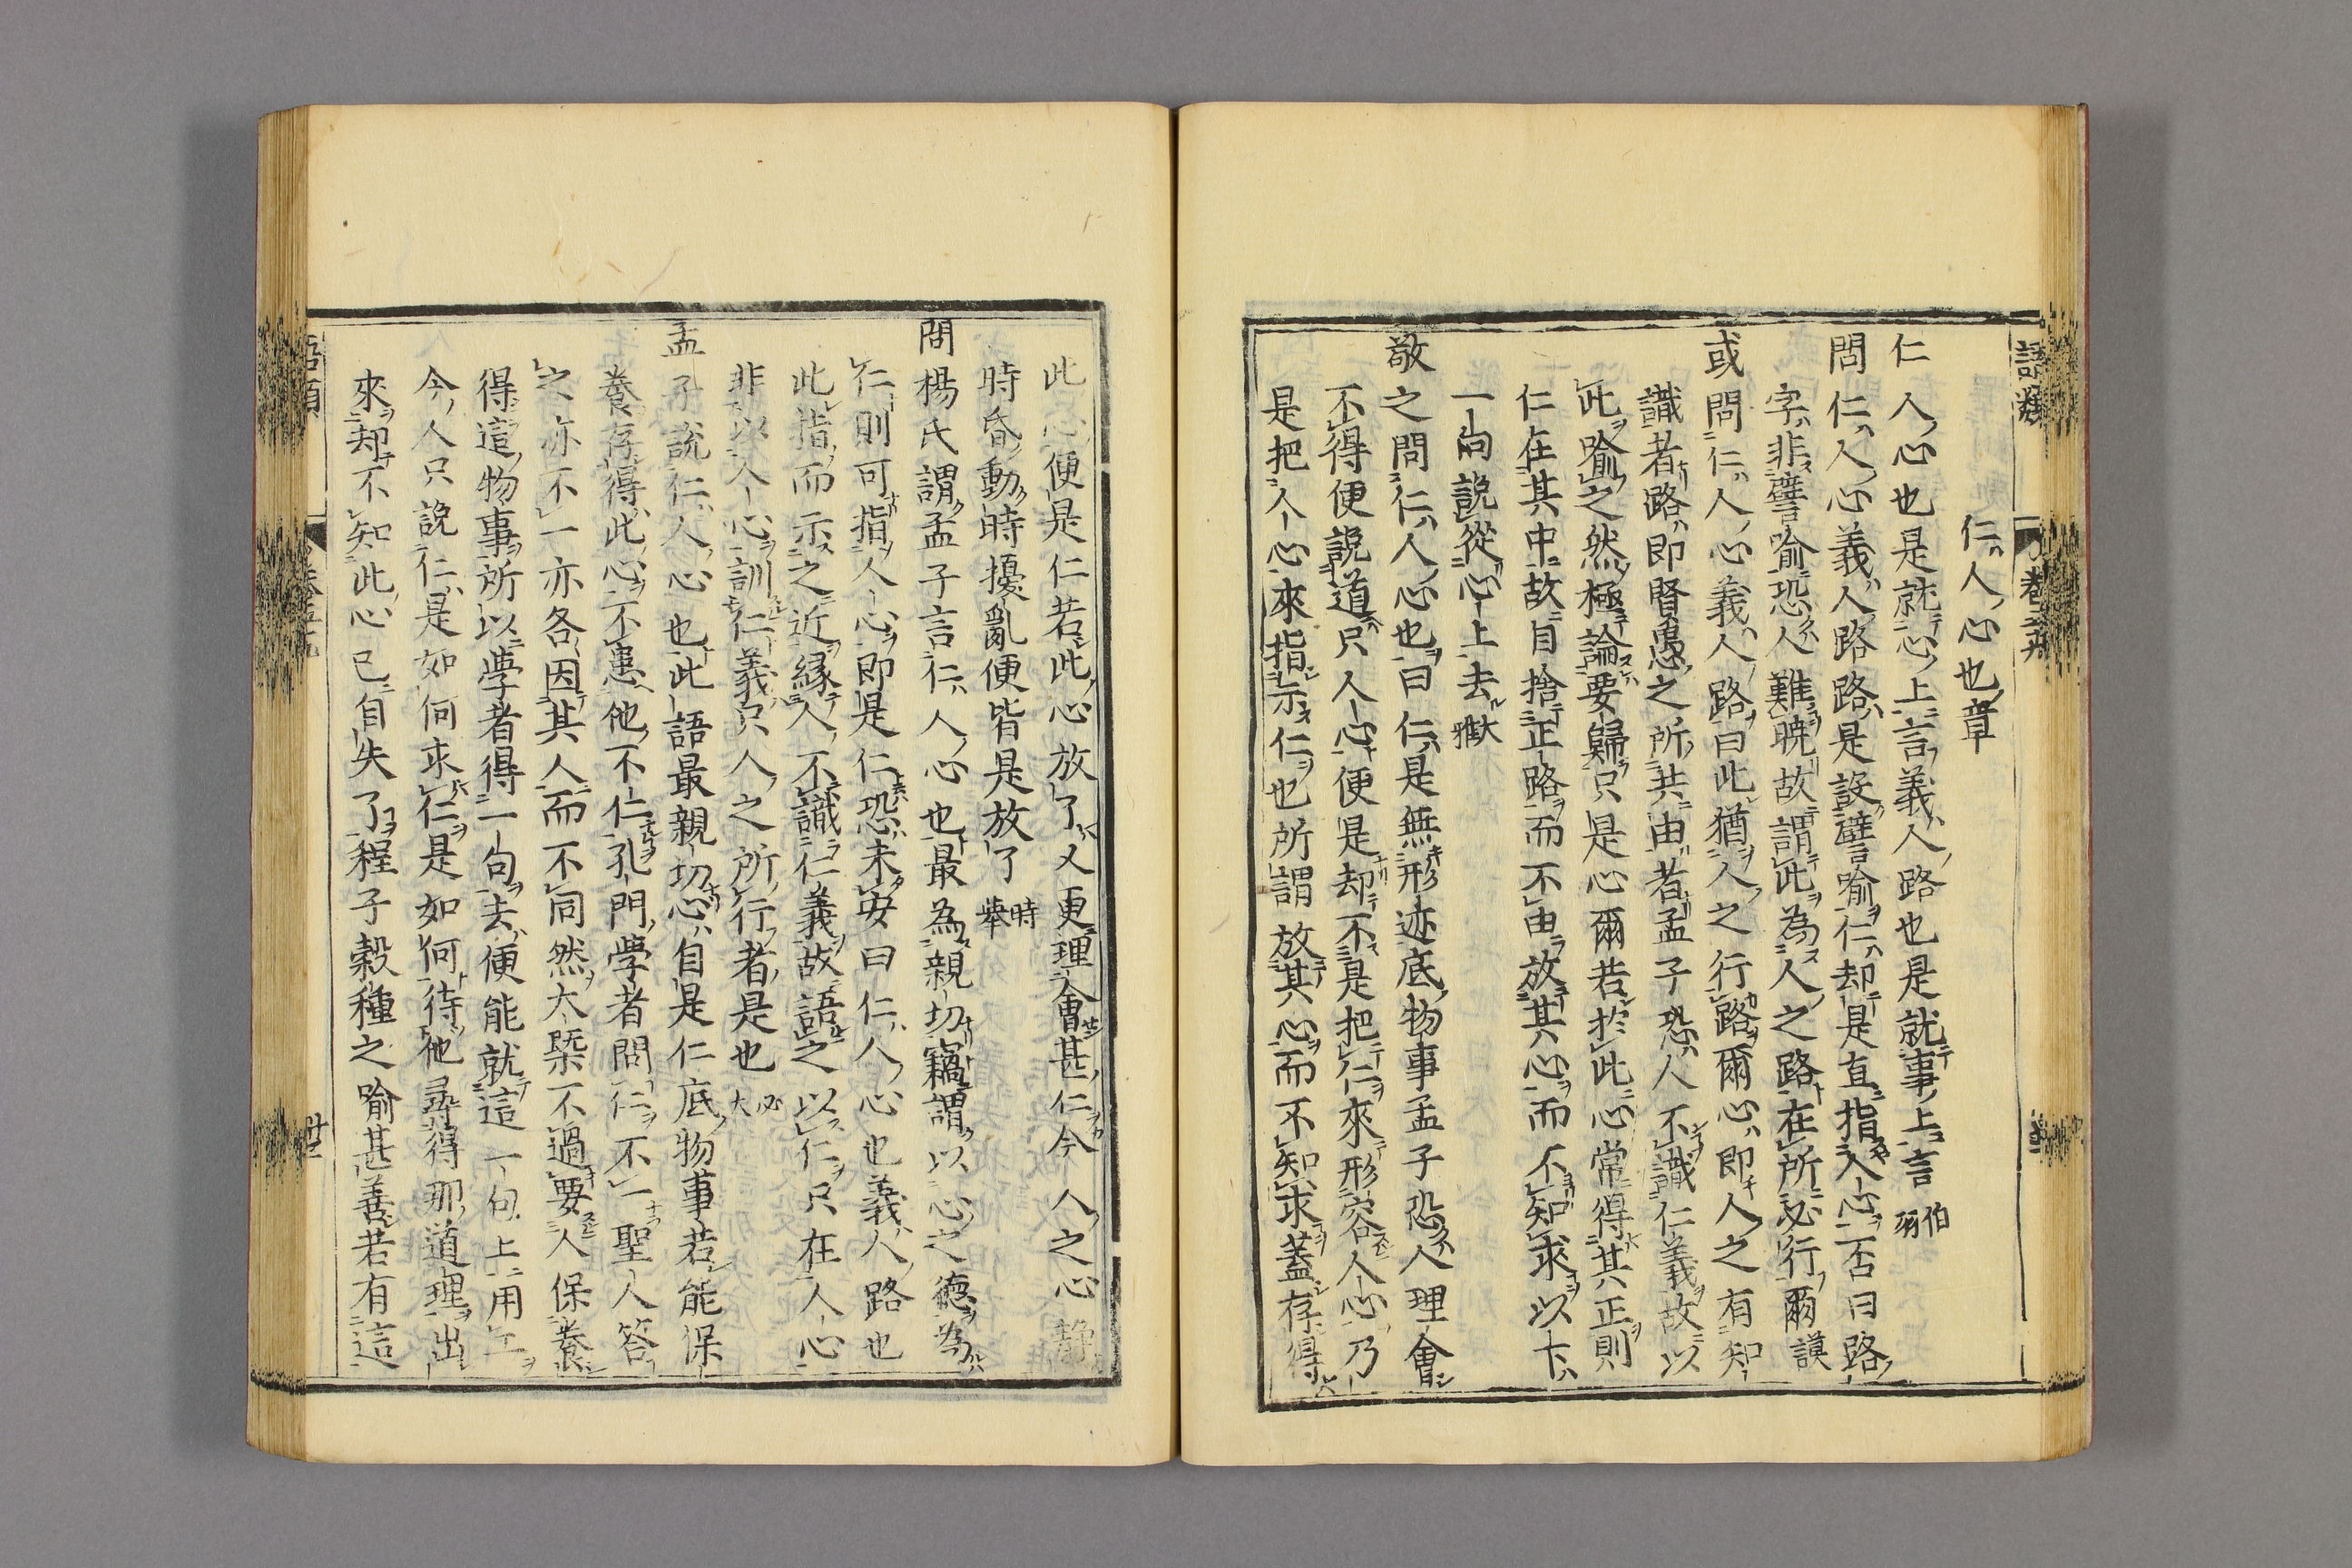 語類
卷五十九
仁人心也章
仁人心也是就心上言義人路也是就事上言伯羽
問仁人心義人路路是設譬喩仁却是直指人心否曰路
字非譬喩恐人難曉故謂此為人之路在所必行爾謨
或問仁人心義人路曰此猶人之行路爾心即人之有知
識者路即賢愚之所共由者孟子恐人不識仁義故以
此喩之然極論要歸只是心爾若於此心常得其正則
仁在其中故自捨正路而不由放其心而不知求以下
一向說從心上去大雅
敬之問仁人心也曰仁是無形迹底物事孟子恐人理會
不得便說道只人心便是却不是把仁來形容人心乃
是把人心來指示仁也所謂放其心而不知求蓋存得
此心便是仁若此心放了又更理會甚仁今人之心靜
時昏動時擾亂便皆是放了時舉
問楊氏謂孟子言仁人心也最為親切竊謂以心之德為
仁則可指人心即是仁恐未安曰仁人心也義人路也
此指而示之近緣人不識仁義故語之以仁只在人心
非以人心訓仁義只人之所行者是也必大
孟子說仁人心也此語最親切心自是仁底物事若能保
養存得此心不患他不仁孔門學者問仁不一聖人答
之亦不一亦各因其人而不同然大槩不過要人保養
得這物事所以學者得一句去便能就這一句上用工
今人只說仁是如何求仁是如何待他尋得那道理出
來却不知此心已自失了程子穀種之喩甚善若有這
語類